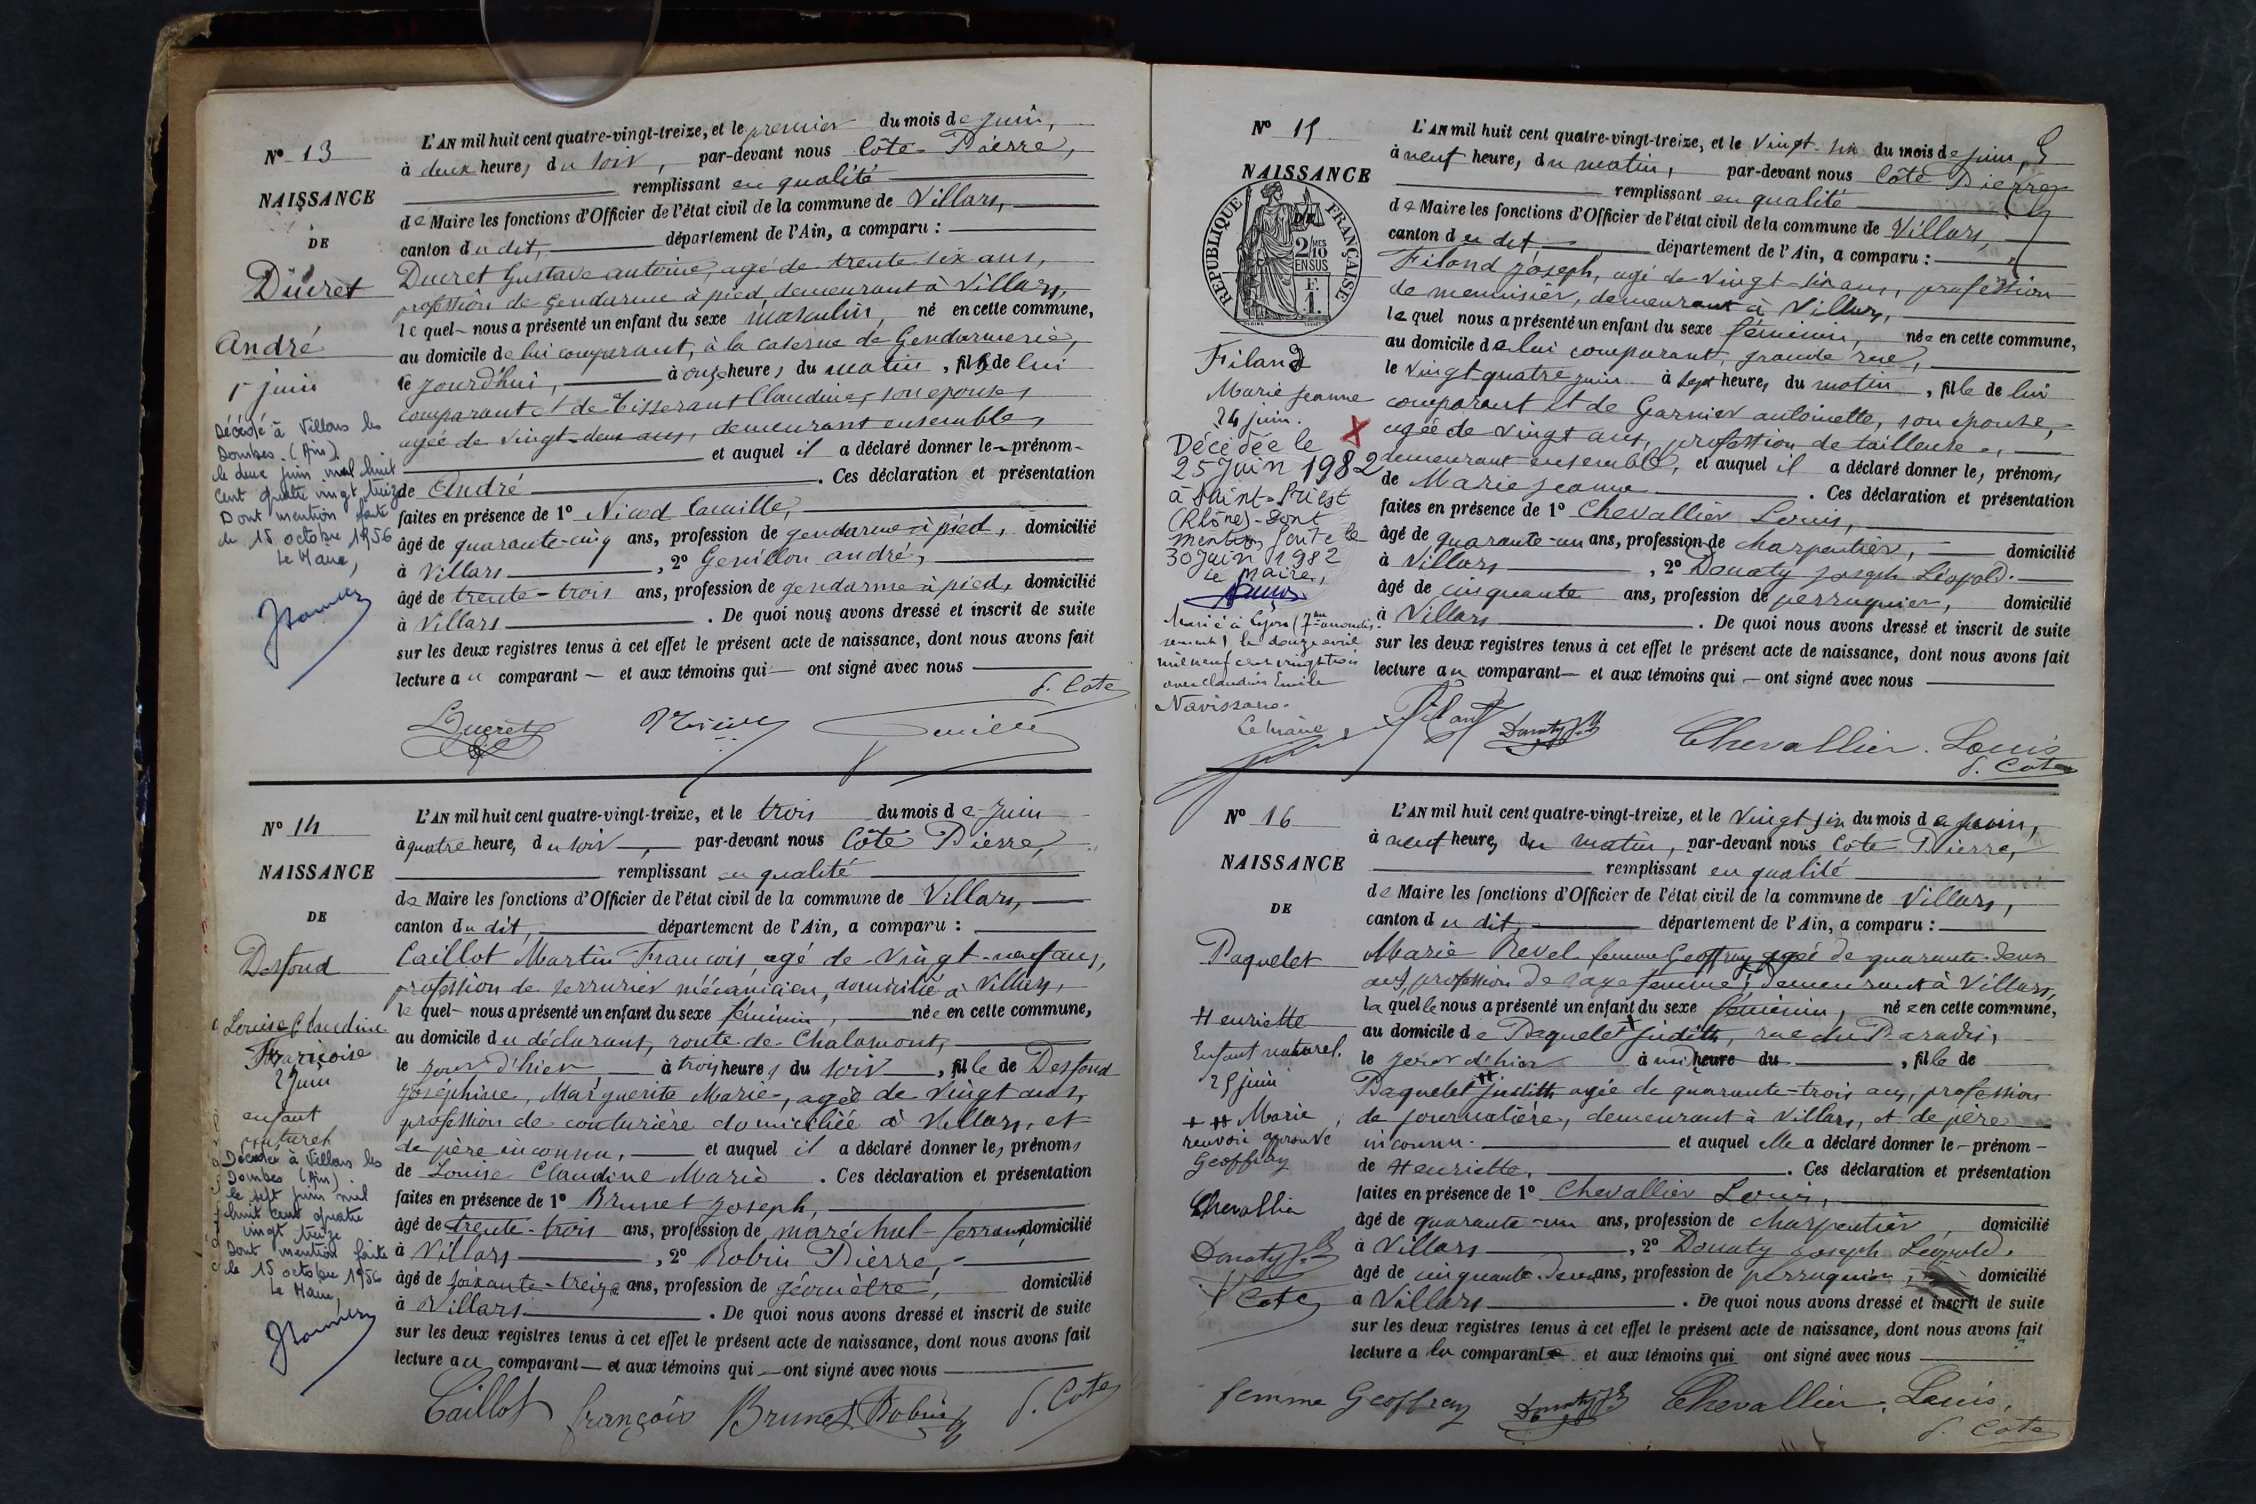 N° 13
NAISSANCE
DE
Ducret
André
1er juin
Décédé à Villars les
Dombes (Ain)
le deux juin mil huit
cent quatre vingt treize
Dont mention faite
le 15 octobre 1956
Le Maire,
L'AN mil huit cent quatre-vingt-treize, et le premier du mois de juin,
à deux heures du soir, par-devant nous Côte Pierre,
remplissant en qualité
de Maire les fonctions d'Officier de l'état civil de la commune de Villars,
canton du dit, département de l'Ain, a comparu :
Ducret Gustave antoine, agé de trente six ans,
profession de Gendarme à pied, demeurant à Villars,
lequel nous a présenté un enfant du sexe masculin, né en cette commune,
au domicile de lui comparant, à la caserne de Gendarmerie,
ce jourd'hui, à onze heures du matin, fils de lui
comparant et de Tisserant Claudine, son epouse,
agée de vingt-deux ans, demeurant ensemble,
et auquel il a déclaré donner le prénom
de André. Ces déclaration et présentation
faites en présence de 1° Nicod Camille,
âgé de quarante-cinq ans, profession de gendarme à pied, domicilié
à Villars, 2° Genillon andré,
âgé de trente-trois ans, profession de gendarme à pied, domicilié
à Villars. De quoi nous avons dressé et inscrit de suite
sur les deux registres tenus à cet effet le présent acte de naissance, dont nous avons fait
lecture au comparant et aux témoins qui ont signé avec nous
P. Cote
Ducret
N° 14
NAISSANCE
DE
Desfond
Louise Claudine
Françoise
2 Juin
enfant
naturel
Décédée à Villars les
Dombes (Ain)
le sept juin mil
huit cent quatre
vingt treize
Dont mention faite
le 15 octobre 1956
Le Maire,
L'AN mil huit cent quatre-vingt-treize, et le trois du mois de Juin
à quatre heure, du soir, par-devant nous Côte Pierre,
remplissant en qualité
de Maire les fonctions d'Officier de l'état civil de la commune de Villars,
canton du dit, département de l'Ain, a comparu :
Caillot Martin François, agé de vingt-neuf ans,
profession de serrurier mécanicien, domicilié à Villars,
lequel nous a présenté un enfant du sexe féminin, née en cette commune,
au domicile du déclarant, route de Chalamont,
le jour d'hier à trois heures du soir, fille de Desfond
Joséphine, Marguerite Marie, agée de vingt ans,
profession de couturière domiciliée à Villars, et
de père inconnu, et auquel il a déclaré donner les prénoms
de Louise Claudine Marie. Ces déclaration et présentation
faites en présence de 1° Brunet Joseph,
âgé de trente-trois ans, profession de maréchal-ferrant, domicilié
à Villars, 2° Robin Pierre,
âgé de soixante-treize ans, profession de géomètre, domicilié
à Villars. De quoi nous avons dressé et inscrit de suite
sur les deux registres tenus à cet effet le présent acte de naissance, dont nous avons fait
lecture au comparant et aux témoins qui ont signé avec nous
Caillot françois Brunet Robin P. Cote
N° 15
NAISSANCE
DE
RÉPUBLIQUE FRANÇAISE
2/10 MES
EN SUS
F.
1.
Filand
Marie Jeanne
24 juin.
Décédée le X
25 Juin 1982
à Saint-Priest
(Rhône) - Dont
mention faite le
30 Juin 1982
Le Maire,
Marié à Lyon (7me arrondis-
sement) le douze avril
mil neuf cent vingt trois
avec Claudius Emile
Navissano.
Le maire,
L'AN mil huit cent quatre-vingt-treize, et le vingt-six du mois de juin,
à neuf heure, du matin, par-devant nous Côte Pierre,
remplissant en qualité
de Maire les fonctions d'Officier de l'état civil de la commune de Villars,
canton du dit, département de l'Ain, a comparu :
Filand Joseph, agé de vingt-six ans, profession
de menuisier, demeurant à Villars,
lequel nous a présenté un enfant du sexe féminin, née en cette commune,
au domicile de lui comparant, grande rue,
le vingt quatre juin à sept heure, du matin, fille de lui
comparant et de Garnier antoinette, son epouse,
agée de vingt ans, profession de tailleuse,
demeurant ensemble, et auquel il a déclaré donner les prénoms
de Marie Jeanne. Ces déclaration et présentation
faites en présence de 1° Chevallier Louis,
âgé de quarante-un ans, profession de charpentier, domicilié
à Villars, 2° Donaty Joseph Léopold.
âgé de cinquante ans, profession de perruquier, domicilié
à Villars. De quoi nous avons dressé et inscrit de suite
sur les deux registres tenus à cet effet le présent acte de naissance, dont nous avons fait
lecture au comparant et aux témoins qui ont signé avec nous
Filand Donaty Chevallier Louis
P. Cote
N° 16
NAISSANCE
DE
Paquelet
Henriette
Enfant naturel.
25 juin
+ # Marie
renvoi approuvé
Geoffray
Chevallier
Donaty
Cote
L'AN mil huit cent quatre-vingt-treize, et le vingt six du mois de juin,
à neuf heure, du matin, par-devant nous Côte Pierre,
remplissant en qualité
de Maire les fonctions d'Officier de l'état civil de la commune de Villars,
canton du dit, département de l'Ain, a comparu :
Marie Revel femme Geoffray agée de quarante-deux
ans, profession de sage femme, demeurant à Villars,
laquelle nous a présenté un enfant du sexe féminin, née en cette commune,
au domicile de Paquelet + Judith, rue du Paradis,
le jour d'hier à midi heure du, fille de
Paquelet # Judith agée de quarante-trois ans, profession
de journalière, demeurant à Villars, et de père
inconnu. et auquel elle a déclaré donner le prénom
de Henriette. Ces déclaration et présentation
faites en présence de 1° Chevallier Louis,
âgé de quarante-un ans, profession de charpentier, domicilié
à Villars, 2° Donaty Joseph Léopold.
âgé de cinquante-deux ans, profession de perruquier, domicilié
à Villars. De quoi nous avons dressé et inscrit de suite
sur les deux registres tenus à cet effet le présent acte de naissance, dont nous avons fait
lecture a la comparante et aux témoins qui ont signé avec nous
femme Geoffray Donaty Chevallier Louis,
P. Cote